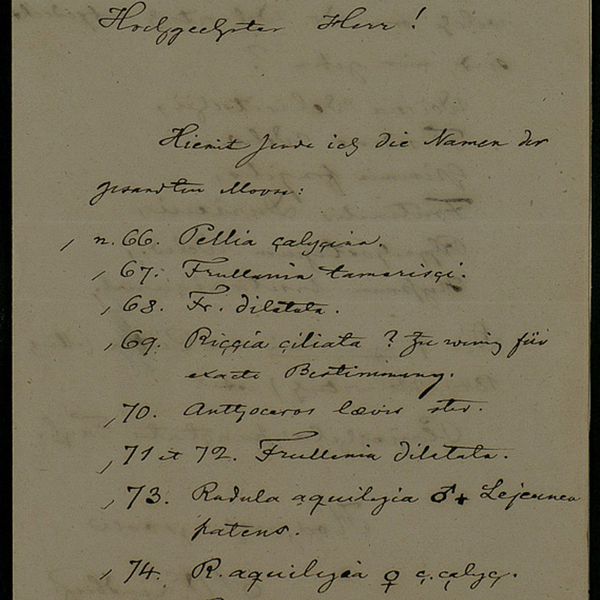 Hochgeehrter Herr!
Hiemit sende ich die Namen der
gesandten Moose:
n. 66. Pellia calycina.
67. Frullania tamarisci.
68. Fr. dilatata.
69. Riccia ciliata? Zu wenig für
exacte Bestimmung.
70. Anthoceros lævis ster.
71 et 72. Frullania dilatata.
73. Radula aquilegia ♂ + Lejeunea
patens.
74. R. aquilegia ♀ c. calyc.